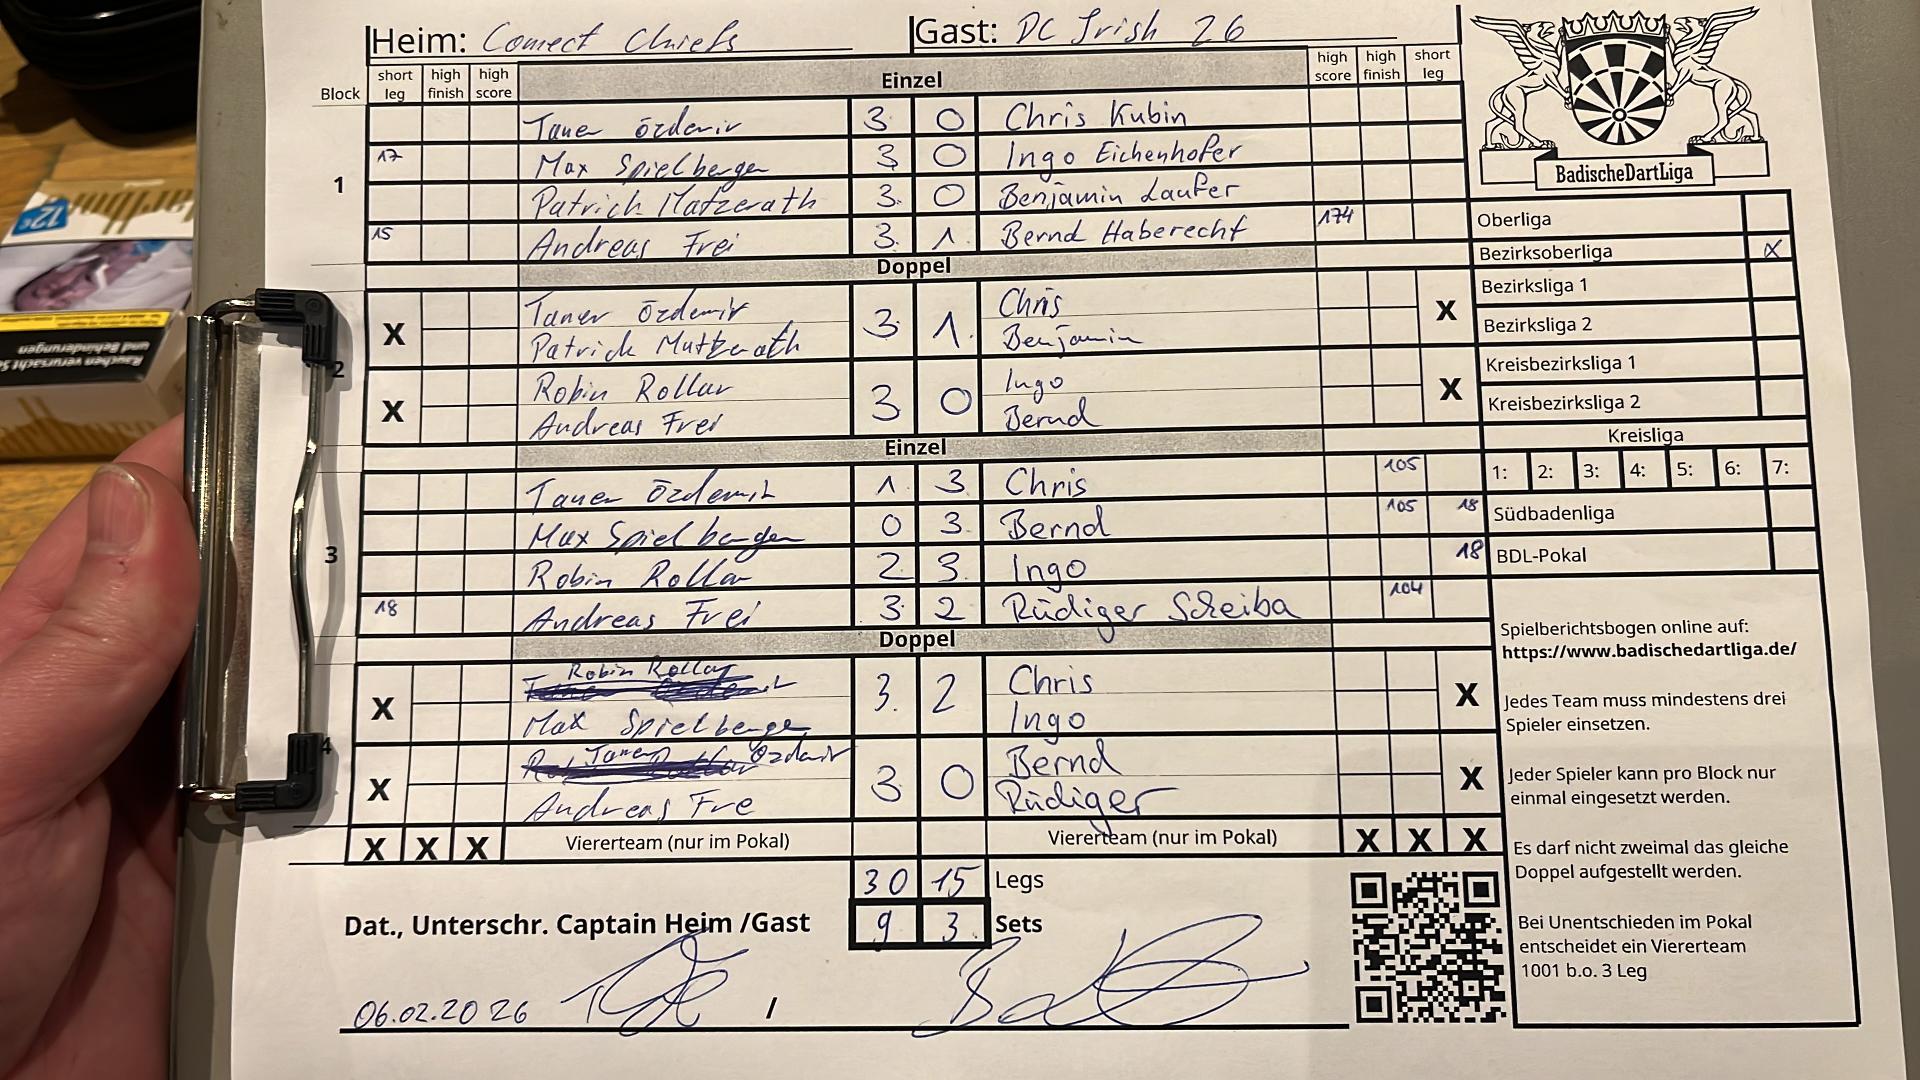 Heim: Comect Chiefs Gast: DC Irish 26
Block short leg high finish high score Einzel high score high finish short leg
1
Taner Özdemir 3 0 Chris Kubin
17 Max Spielberger 3 0 Ingo Eichenhofer
Patrick Matzerath 3 0 Benjamin Laufer
15 Andreas Frei 3 1 Bernd Haberecht 174
Doppel
2
X Taner Özdemir 3 1 Chris X
Patrick Matzerath Benjamin
X Robin Rollar 3 0 Ingo X
Andreas Frei Bernd
Einzel
3
Taner Özdemir 1 3 Chris 105
Max Spielberger 0 3 Bernd 105 18
Robin Rollar 2 3 Ingo 18
18 Andreas Frei 3 2 Rüdiger Scheiba 104
Doppel
4
X Robin Rollar 3 2 Chris X
Max Spielberger Ingo
X Taner Özdemir 3 0 Bernd X
Andreas Fre Rüdiger
X X X Viererteam (nur im Pokal) Viererteam (nur im Pokal) X X X
30 15 Legs
Dat., Unterschr. Captain Heim /Gast 9 3 Sets
06.02.2026 /
BadischeDartLiga
Oberliga
Bezirksoberliga X
Bezirksliga 1
Bezirksliga 2
Kreisbezirksliga 1
Kreisbezirksliga 2
Kreisliga
1: 2: 3: 4: 5: 6: 7:
Südbadenliga
BDL-Pokal
Spielberichtsbogen online auf:
https://www.badischedartliga.de/
Jedes Team muss mindestens drei
Spieler einsetzen.
Jeder Spieler kann pro Block nur
einmal eingesetzt werden.
Es darf nicht zweimal das gleiche
Doppel aufgestellt werden.
Bei Unentschieden im Pokal
entscheidet ein Viererteam
1001 b.o. 3 Leg
12€
Rauchen verursacht
und Behinderungen